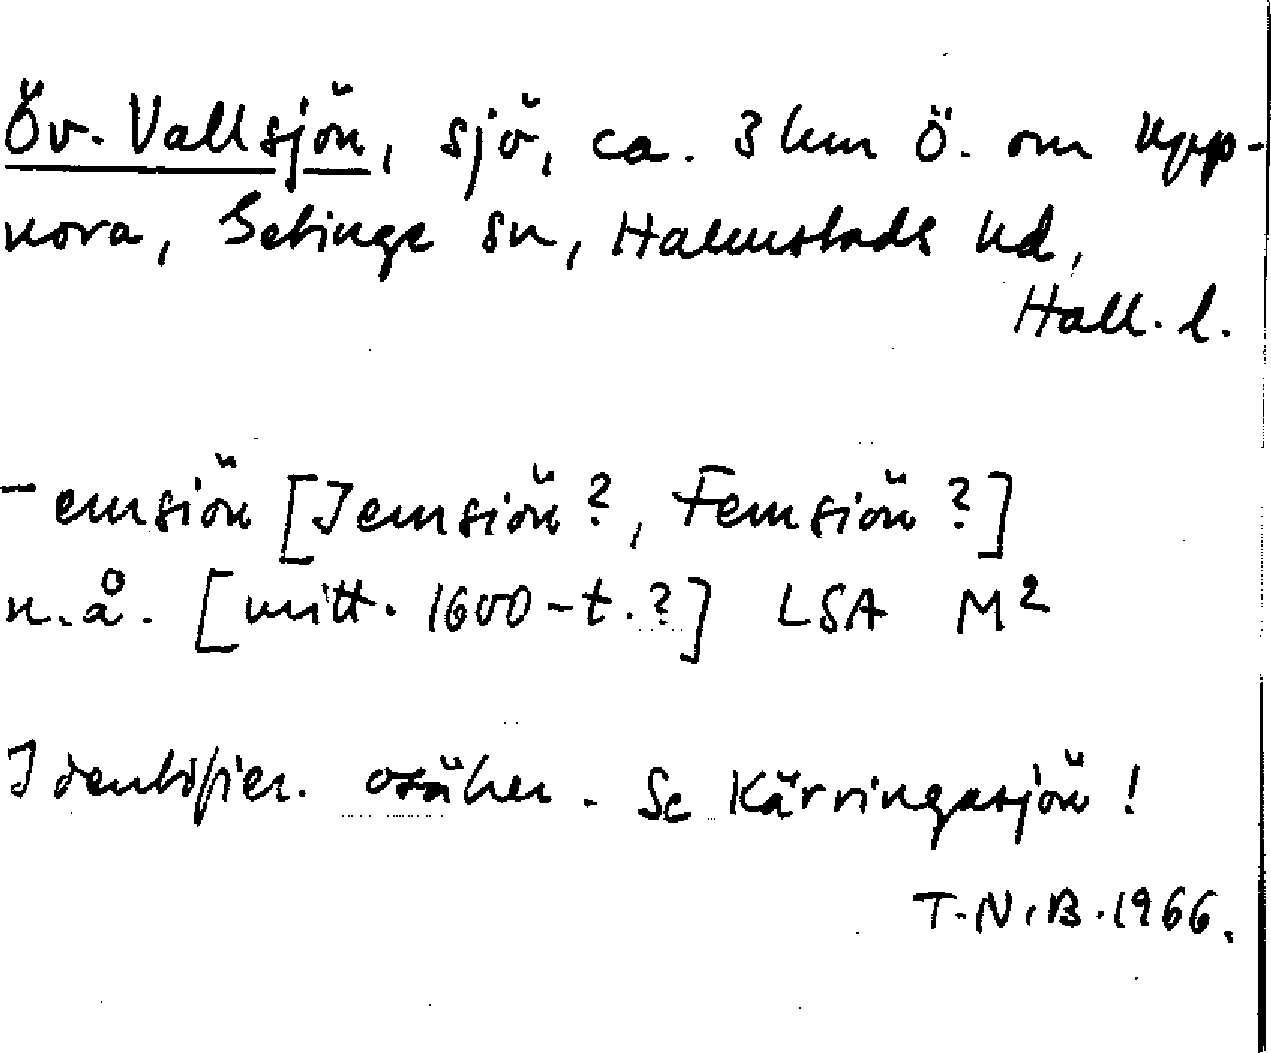 Öv. Vallsjön, sjö, ca. 3 km Ö. om Upp-
nora, Getinge sn, Halmstads hd,
Hall. l.
- emsiön [Jemsiön?, Femsiön?]
n.å. [mitt. 1600-t.?] LSA M²
Identifier. osäker. Se Kärringasjön!
T.N.B. 1966.